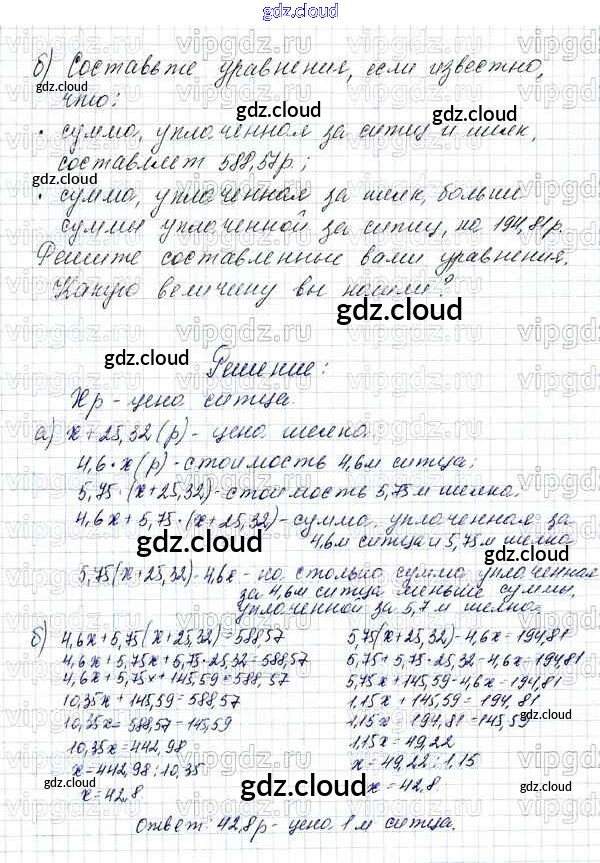 gdz.cloud
б) Составьте уравнения, если известно,
что:
• сумма, уплаченная за ситец и шёлк,
составляет 588,57 р.;
• сумма, уплаченная за шелк, больше
суммы уплаченной за ситец, на 194,81 р.
Решите составленные вами уравнения.
Какую величину вы нашли?
Решение:
Х р - цена ситца.
а) х + 25,32 (р) - цена шелка.
4,6 · х (р) - стоимость 4,6 м ситца;
5,75 · (х + 25,32) - стоимость 5,75 м шелка;
4,6х + 5,75 · (х + 25,32) - сумма, уплаченная за
4,6 м ситца и 5,75 м шелка
5,75(х + 25,32) - 4,6х - на столько сумма уплаченная
за 4,6 м ситца меньше суммы,
уплаченной за 5,7 м шелка.
б) 4,6х + 5,75(х + 25,32) = 588,57
4,6х + 5,75х + 5,75 · 25,32 = 588,57
4,6х + 5,75х + 145,59 = 588,57
10,35х + 145,59 = 588,57
10,35х = 588,57 - 145,59
10,35х = 442,98
х = 442,98 : 10,35
х = 42,8.
5,75(х + 25,32) - 4,6х = 194,81
5,75 + 5,75 · 25,32 - 4,6х = 194,81
5,75х + 145,59 - 4,6х = 194,81
1,15х + 145,59 = 194,81
1,15х = 194,81 - 145,59
1,15х = 49,22
х = 49,22 : 1,15
х = 42,8.
Ответ: 42,8 р - цена 1 м ситца.